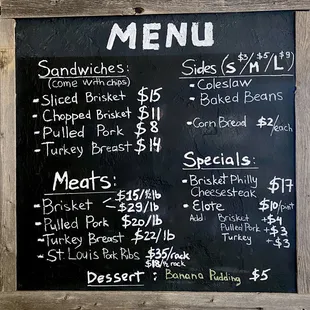 MENU
Sandwiches:
(come with chips)
- Sliced Brisket $15
- Chopped Brisket $11
- Pulled Pork $8
- Turkey Breast $14
Meats:
- Brisket < $15/½ lb
$29/lb
- Pulled Pork $20/lb
- Turkey Breast $22/lb
- St. Louis Pork Ribs $35/rack
$18/½ rack
Sides (S $3/M $5/L $9)
- Coleslaw
- Baked Beans
- Corn Bread $2/each
Specials:
- Brisket Philly
Cheesesteak $17
- Elote $10/pint
Add: Brisket + $4
Pulled Pork + $3
Turkey + $3
Dessert : Banana Pudding $5